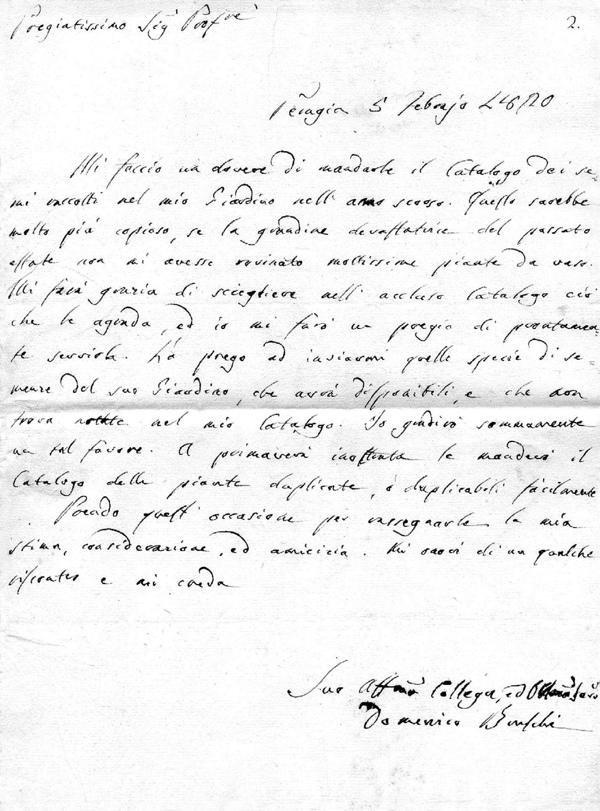 Pregiatissimo Sig.r Prof.re
2.
Perugia 5 Febrajo 1820
Mi faccio un dovere di mandarle il Catalogo dei se-
mi raccolti nel mio Giardino nell' anno scorso. Questo sarebbe
molto più copioso, se la grandine devastatrice del passato
estate non mi avesse rovinato moltissime piante da vaso.
Mi farà grazia di sciegliere nell' accluso Catalogo ciò
che le agrada, ed io mi farò un pregio di prontamen-
te servirla. La prego ad inviarmi quelle specie di se-
menze del suo Giardino, che avrà disponibili, e che non
trova notate nel mio Catalogo. Io gradirò sommamente
un tal favore. A primavera inoltrata le manderò il
Catalogo delle piante duplicate, ò duplicabili facilmente
Prendo quest' occasione per rassegnarle la mia
stima, considerazione, ed amicizia. Mi onori di un qualche
riscontro e mi creda
Suo Aff.mo Collega, ed
Domenico Bruschi